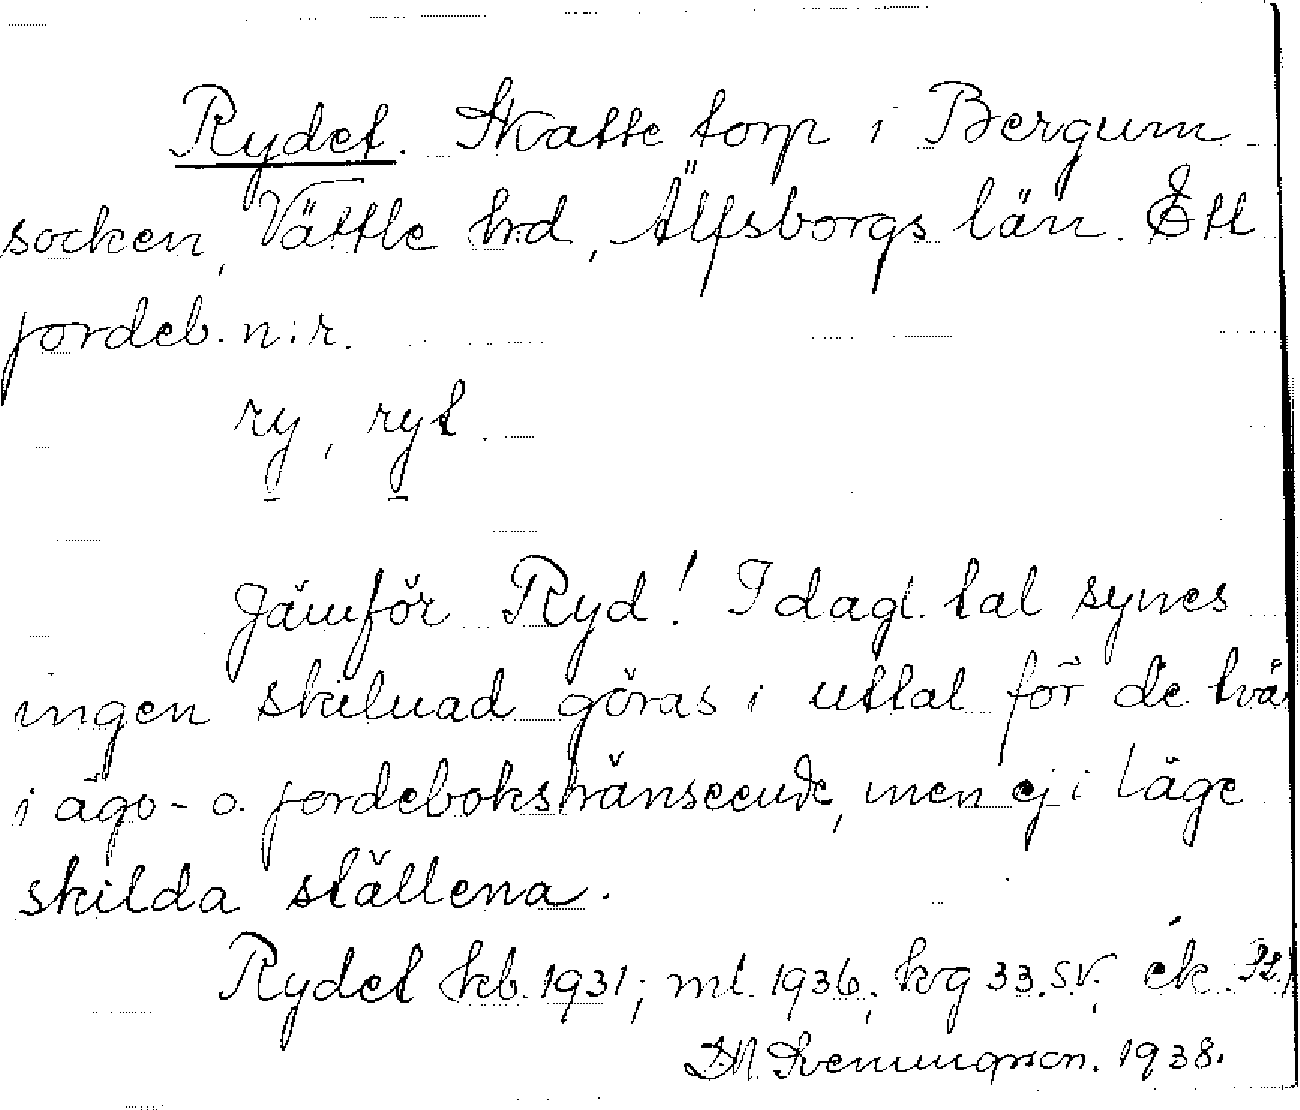 Rydet. Skatte torp i Bergum
socken, Vättle hrd, Älfsborgs län. Ett
jordeb. n:r.
ry, ryt.
Jämför Ryd! I dagl. tal synes
ingen skilnad göras i uttal för de två
i ägo- o. jordebokshänseende, men ej i läge
skilda ställena.
Rydet kb. 1931; ml. 1936; krg 33.SV; ek.
1938.